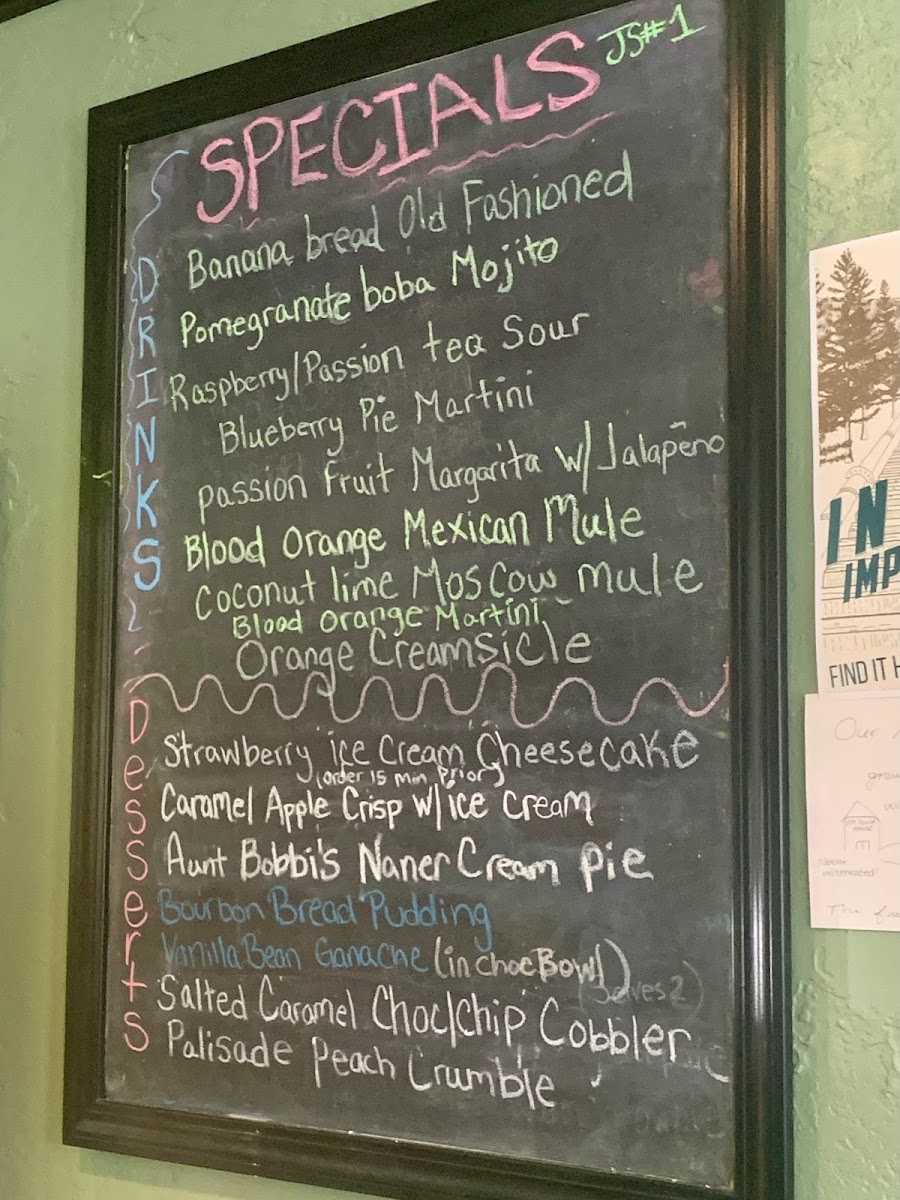 SPECIALS JS#1
DRINKS
Banana bread Old Fashioned
Pomegranate boba Mojito
Raspberry/Passion tea Sour
Blueberry Pie Martini
passion fruit Margarita w/ Jalapēno
Blood Orange Mexican Mule
Coconut lime Moscow mule
Blood Orange Martini
Orange Creamsicle
Desserts
Strawberry ice Cream Cheesecake
(order 15 min prior)
Caramel Apple Crisp w/ice cream
Aunt Bobbi's Naner Cream pie
Bourbon Bread Pudding
Vanilla Bean Ganache (in choc Bowl)
(Serves 2)
Salted Caramel Choc/chip Cobbler
Palisade Peach Crumble
IN
IMP
FIND IT H
Our
The